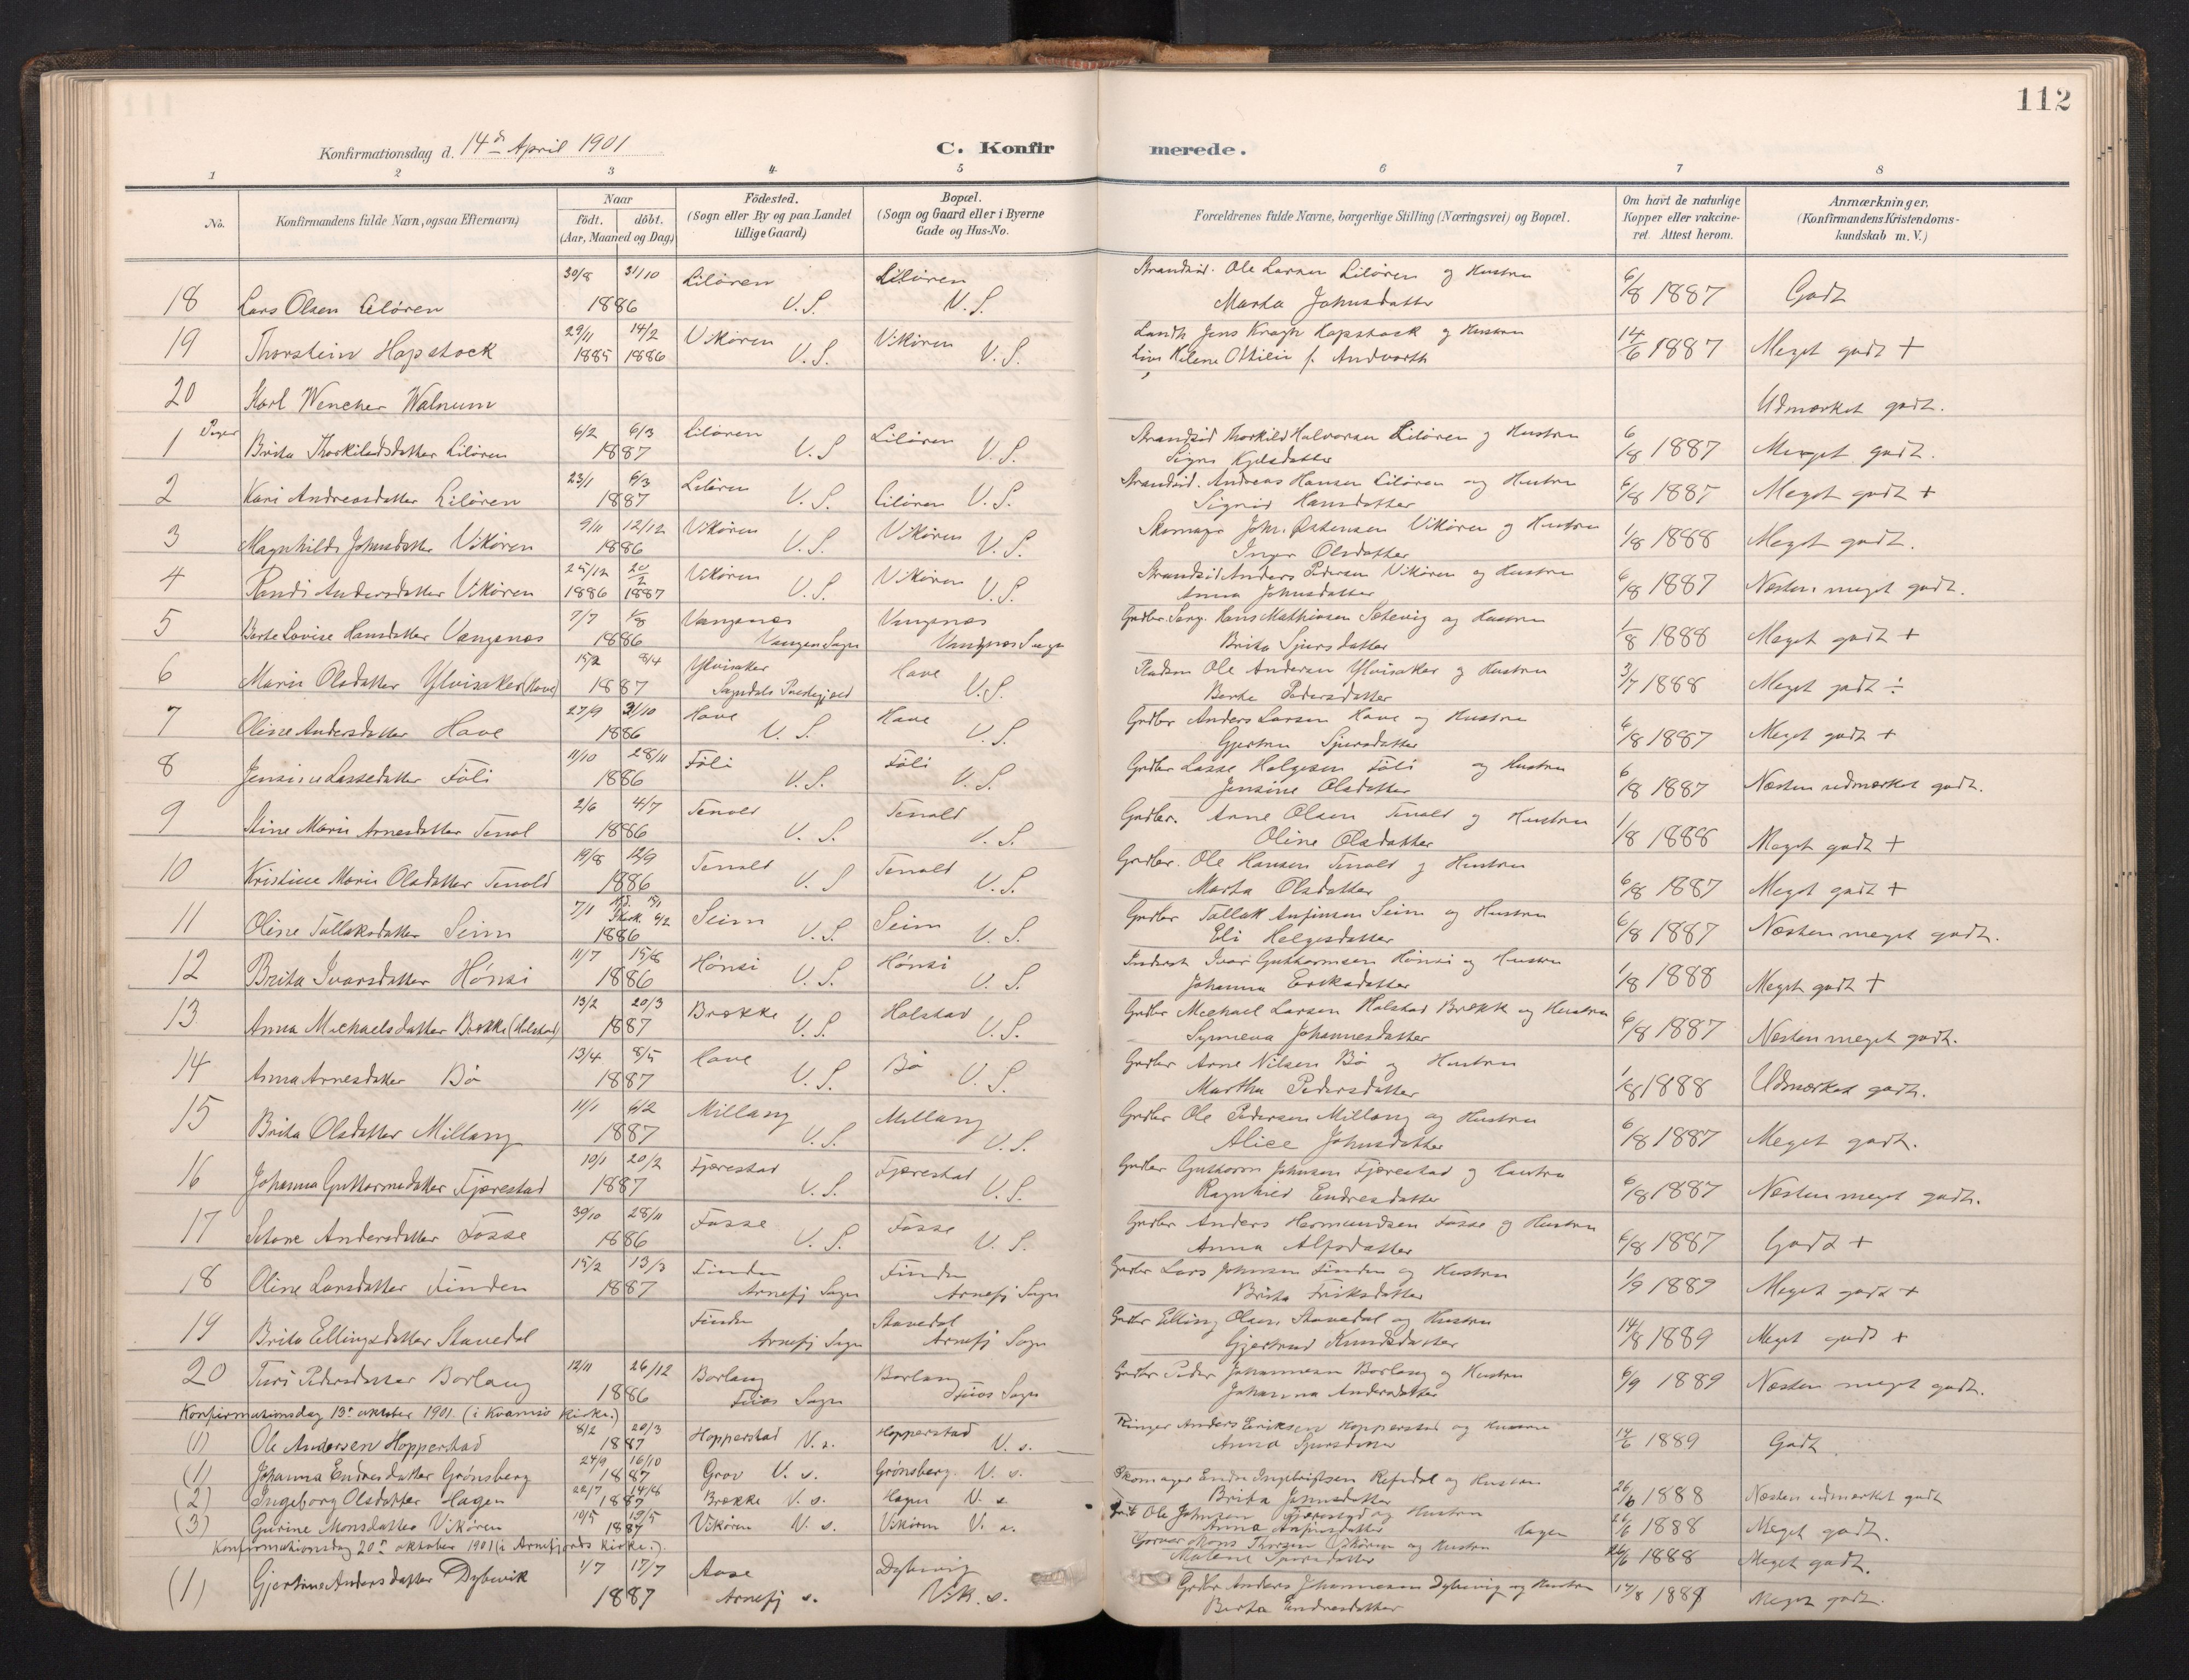 112
Konfirmationsdag d. 14de April 1901
C. Konfirmerede.
1 2 3 4 5 6 7 8
No. Konfirmandens fulde Navn, ogsaa Efternavn) Naar födt. döbt. (Aar, Maaned og Dag) Födested. (Sogn eller By og paa Landet tillige Gaard) Bopæl. (Sogn og Gaard eller i Byerne Gade og Hus-No. Forældrenes fulde Navne, borgerlige Stilling (Næringsvei) og Bopæl. Om havt de naturlige Kopper eller vakcineret. Attest herom. Anmærkninger. (Konfirmandens Kristendomskundskab m. V.)
18 Lars Olsen Liløren 30/8 31/10 1886 Liløren V. S. Liløren V. S. Strandsid. Ole Larsen Liløren og Hustru Marta Johnsdatter 6/8 1887 Godt
19 Thorstein Hopstock 29/11 1885 14/2 1886 Vikøren V. S. Vikøren V. S. Landh. Jens Kragh Hopstock og Hustru Helene Ottilie f. 14/6 1887 Meget godt +
20 Karl Wencher Walnum Udmærket godt.
Piger
1 Brita Thorkildsdatter Liløren 6/2 6/3 1887 Liløren V. S Liløren V. S. Strandsid Thorkild Halvorsen Liløren og Hustru Signe 6/8 1887 Meget godt.
2 Kari Andreasdatter Liløren 23/1 6/3 1887 Liløren V. S. Liløren V. S. Strandsid. Andreas Hansen Liløren og Hustru Sigrid Hansdatter 6/8 1887 Meget godt +
3 Magnhild Johnsdatter Vikøren 9/11 12/12 1886 Vikøren V. S. Vikøren V. S. Skomager John Østensen Vikøren og Hustru Inger Olsdatter 1/8 1888 Meget godt.
4 Randi Andersdatter Vikøren 25/12 1886 20/2 1887 Vikøren V. S. Vikøren V. S. Strandsid Anders Pedersen Vikøren og Hustru Anna Johnsdatter 6/8 1887 Næsten meget godt.
5 Lovise Hansdatter Vangsnes 7/7 1/8 1886 Vangsnes Vangsn Sogn Vangsnes Vangsnes Sogn Grdbr. Hans Mathiasen og Hustru Brita Sjursdatter 1/8 1888 Meget godt +
6 Marie Olsdatter Ylvisaker (Hove) 15/2 8/4 1887 Ylvisaker Sogndals Præstegjæld Hove V. S. Pladsm Ole Andersen Ylvisaker og Hustru Berte Pedersdatter 3/7 1888 Meget godt ÷
7 Oline Andersdatter Hove 27/9 31/10 1886 Hove V. S. Hove V. S. Grdbr Anders Larsen Hove og Hustru Gjertru Sjursdatter 6/8 1887 Meget godt +
8 Jensine Lassedatter Føli 11/10 28/11 1886 Føli V. S. Føli V. S. Grdbr Lasse Helgesen Føli og Hustru Jensine Olsdatter 6/8 1887 Næsten udmærket godt.
9 Stine Marie Arnesdatter Tenol 2/6 4/7 1886 Tenold V. S. Tenold V. S. Grdbr. Arne Olsen Tenold og Hustru Oline Olsdatter 1/8 1888 Meget godt +
10 Kristine Marie Olsdatter Tenold 19/8 12/9 1886 Tenold V. S Tenold V. S. Grdbr. Ole Hansen Tenold og Hustru Marta Olsdatter 6/8 1887 Meget godt +
11 Oline Tollaksdatter Seim 7/1 1886 Seim V. S. Seim V. S. Grdbr Tollak Anfinsen Seim og Hustru Eli Helgesdatter 6/8 1887 Næsten meget godt.
12 Brita Ivarsdatter Hønsi 11/7 15/8 1886 Hønsi V. S. Hønsi V. S. Ivar Guttormsen Hønsi og Hustru Johanna Eriksdatter 1/8 1888 Meget godt +
13 Anna Michaelsdatter Brekke (Holstad) 13/2 20/3 1887 Brekke V. S. Holstad V. S. Grdbr Michael Larsen Holstad Brekke og Hustru Synneva Johannesdatter 6/8 1887 Næsten meget godt.
14 Anna Arnesdatter Bø 13/4 8/5 1887 Hove V. S. Bø V. S. Grdbr Arne Nilsen Bø og Hustru Martha Pedersdatter 1/8 1888 Udmærket godt.
15 Brita Olsdatter Millang 11/1 6/2 1887 Millang V. S. Millang V. S. Grdbr Ole Pedersen Millang og Hustru Alice Johnsdatter 6/8 1887 Meget godt.
16 Johanna Guttormsdatter Fjærestad 10/1 20/2 1887 Fjærestad V. S. Fjærestad V. S. Grdbr Guttorm Johnsen Fjærestad og Hustru Ragnhild Endresdatter 6/8 1887 Næsten meget godt.
17 Andersdatter Fosse 30/10 28/11 1886 Fosse V. S. Fosse V. S. Grdbr Anders Hermundsen Fosse og Hustru Anna 6/8 1887 Godt +
18 Oline Larsdatter Finden 15/2 13/3 1887 Finden Arnefj Sogn Finden Arnefj Sogn Grdbr Lars Johnsen Finden og Hustru Brita 1/9 1889 Meget godt +
19 Brita Ellingsdatter Stavedal Finden Arnefj Sogn Stavedal Arnefj Sogn Grdbr Elling Olsen Stavedal og Hustru Gjertrud Knudsdatter 14/8 1889 Meget godt +
20 Turi Pedersdatter Borlaug 12/11 26/12 1886 Borlaug Sogn Borlaug Sogn Grdbr Peder Johannesen Borlaug og Hustru Johanna Andersdatter 6/9 1889 Næsten meget godt.
Konfirmationsdag 13de oktober 1901. (i Kvamsø kirke.)
(1) Ole Andersen Hopperstad 8/2 20/3 1887 Hopperstad V. s. Hopperstad V. s. Anders Eriksen Hopperstad og Hustru Anna Sjursdatter 14/6 1889 Godt
(1) Johanna Endresdatter Grønsberg 24/9 16/10 1887 Grov V. s. Grønsberg. V. s. Skomager Endre Ingebrigtsen Refsdal og Hustru Brita Johnsdatter 26/6 1888 Næsten udmærket godt
(2) Ingeborg Olsdatter Hagen 22/7 14/8 1887 Brekke V. s. Hagen V. s. Ole Johnsen og Hustru Anna Anfinsdatter Hagen 26/6 1888 Meget godt.
(3) Gurine Monsdatter Vikøren 10/5 1887 Vikøren V. s. Vikøren V. s. Mons Vikøren og Hustru Malene Sjursdatter 26/6 1888 Meget godt.
Konfirmationsdag 20de oktober 1901 (i Arnefjords kirke.).
(1) Gjertine Andersdatter Dybevik 1/7 17/7 1887 Aase Arnefj s. Dybevig Vik. s. Grdbr Anders Johannesen Dybevig og Hustru Endresdatter 14/8 1889 Meget godt.